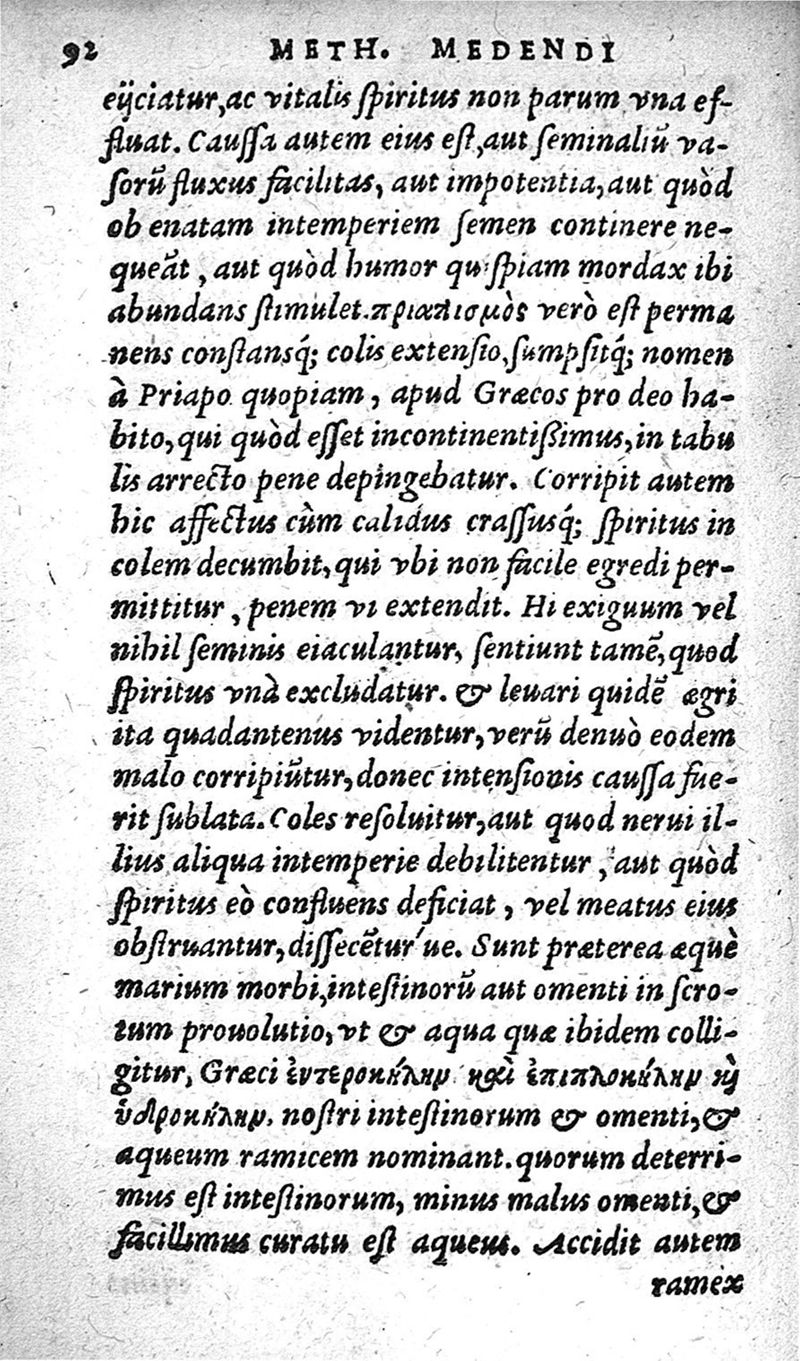 92 METH. MEDENDI
eijciatur, ac vitalis ſpiritus non parum vna ef-
fluat. Cauſſa autem eius eſt, aut ſeminaliũ va-
ſorũ fluxus facilitas, aut impotentia, aut quòd
ob enatam intemperiem ſemen continere ne-
queãt, aut quòd humor quiſpiam mordax ibi
abundans ſtimulet. πριαπισμὸς verò eſt perma
nens conſtansq́; colis extenſio, ſumpſitq́; nomen
à Priapo quopiam, apud Græcos pro deo ha-
bito, qui quòd eſſet incontinentißimus, in tabu
lis arrecto pene depingebatur. Corripit autem
hic affectus cùm calidus craſſusq́; ſpiritus in
colem decumbit, qui vbi non facile egredi per-
mittitur, penem vi extendit. Hi exiguum vel
nihil ſeminis eiaculantur, ſentiunt tamẽ, quod
ſpiritus vnà excludatur. & leuari quidẽ ægri
ita quadantenus videntur, verũ denuò eodem
malo corripiũtur, donec intenſionis cauſſa fue-
rit ſublata. Coles reſoluitur, aut quod nerui il-
lius aliqua intemperie debilitentur, aut quòd
ſpiritus eò confluens deficiat, vel meatus eius
obſtruantur, diſſecẽtur'ue. Sunt præterea æquè
marium morbi, inteſtinorũ aut omenti in ſcro-
tum prouolutio, vt & aqua quæ ibidem colli-
gitur, Græci ἐντεροκήλην καὶ ἐπιπλοκήλην καὶ
ὑδροκήλην, noſtri inteſtinorum & omenti, &
aqueum ramicem nominant. quorum deterri-
mus eſt inteſtinorum, minus malus omenti, &
facillimus curatu eſt aqueus. Accidit autem
ramex